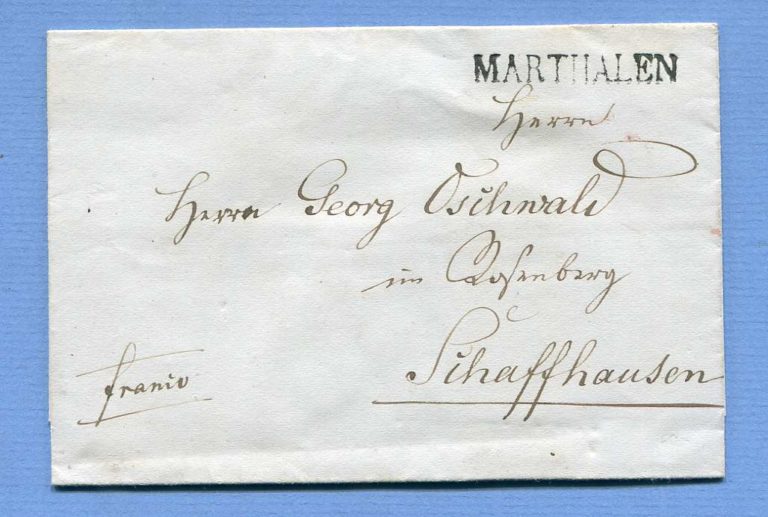 MARTHALEN
Herrn
Herrn Georg Oschwald
im Rosenberg
Schaffhausen
franco